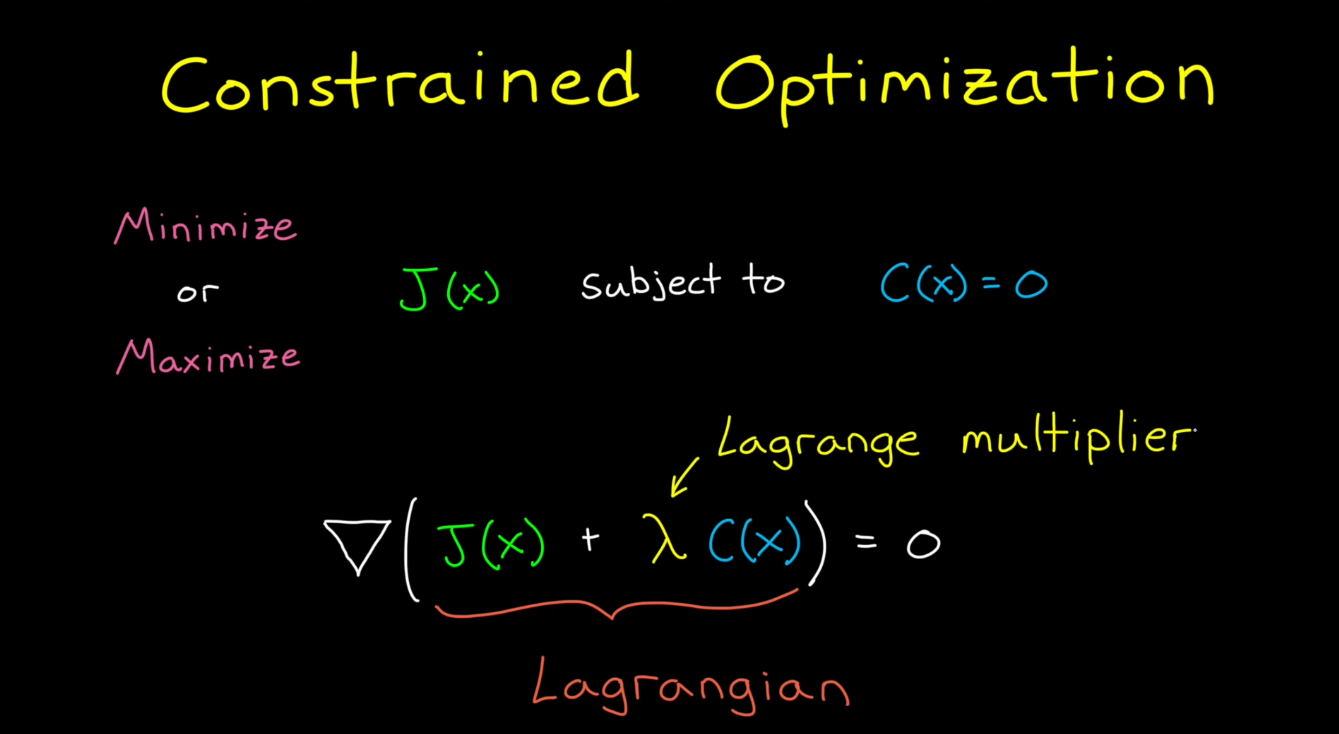 Constrained Optimization
Minimize
or
Maximize
J(x) subject to C(x) = 0
Lagrange multiplier
∇(J(x) + λ C(x)) = 0
Lagrangian